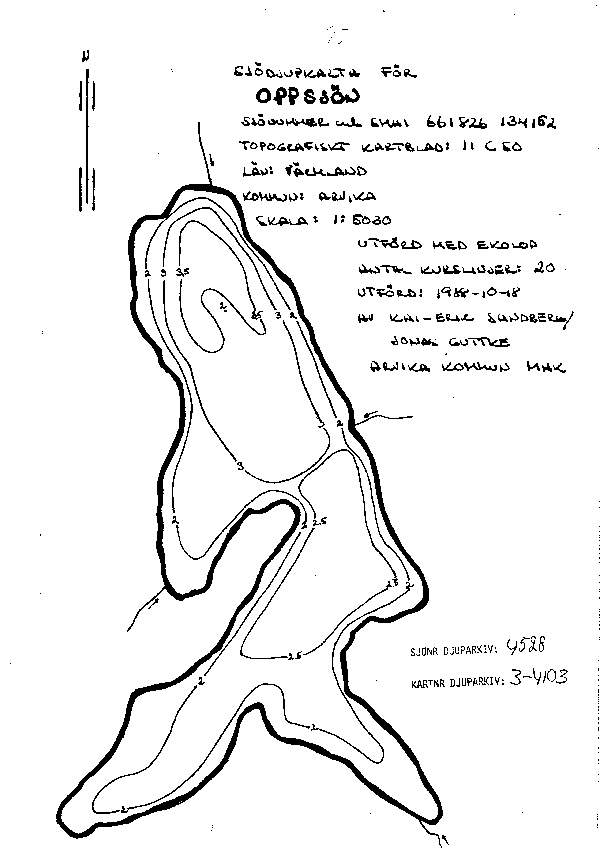 N
SJÖDJUPKARTA FÖR
OPPSJÖN
SJÖNUMMER enl SMHI 661826 134162
TOPOGRAFISKT KARTBLAD: 11 C SO
LÄN: VÄRMLAND
KOMMUN: ARVIKA
SKALA: 1:5000
UTFÖRD MED EKOLOD
ANTAL KURSLINJER: 20
UTFÖRD: 1988-10-18
AV KAI-ERIK SANDBERG/
JONAS GUTTKE
ARVIKA KOMMUN MHK
2 3 3,5
2,
3,5 3 2
3 2
3
2
2 2.5
2.5 2
2.5
2
2
2
SJÖNR DJUPARKIV: 4528
KARTNR DJUPARKIV: 3-4103